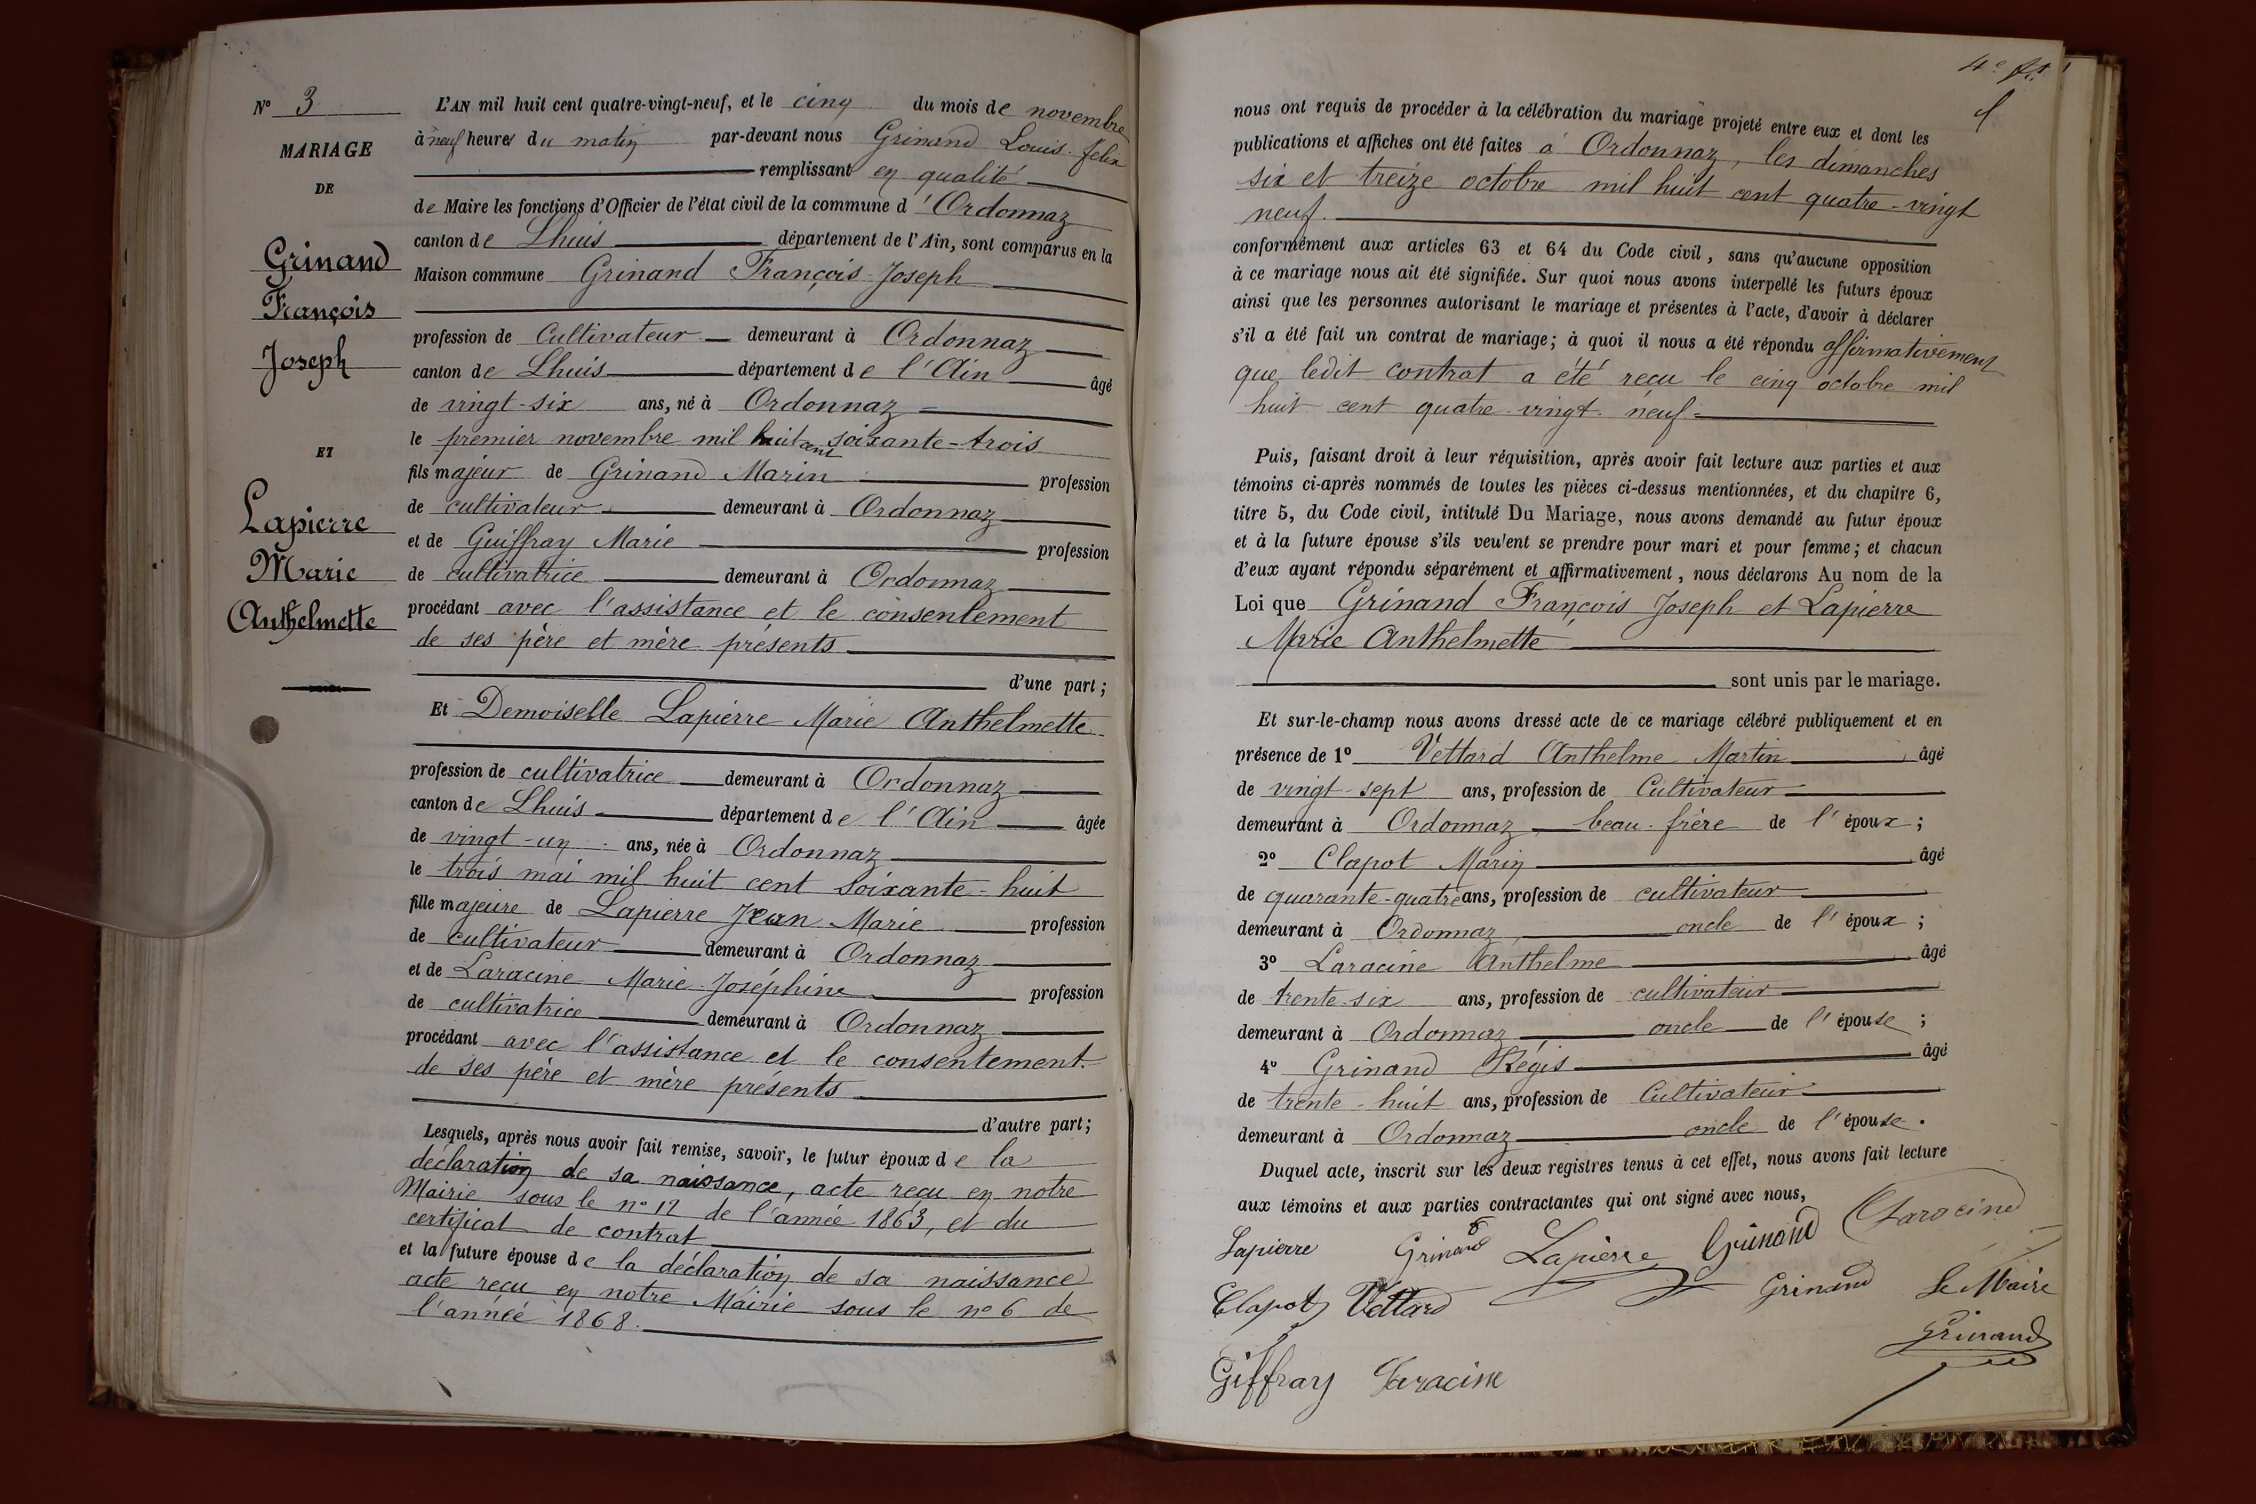 N° 3
MARIAGE
DE
Grinand
François
Joseph
ET
Lapierre
Marie
Anthelmette
L'AN mil huit cent quatre-vingt-neuf, et le cinq du mois de novembre
à neuf heures du matin par-devant nous Grinand Louis Felix
remplissant en qualité
de Maire les fonctions d'Officier de l'état civil de la commune d'Ordonnaz
canton de Lhuis département de l'Ain, sont comparus en la
Maison commune Grinand François Joseph
profession de Cultivateur demeurant à Ordonnaz
canton de Lhuis département de l'Ain âgé
de vingt-six ans, né à Ordonnaz
le premier novembre mil huit cent soixante-trois
fils majeur de Grinand Marin profession
de cultivateur demeurant à Ordonnaz
et de Guiffray Marie profession
de cultivatrice demeurant à Ordonnaz
procédant avec l'assistance et le consentement
de ses père et mère présents
d'une part;
Et Demoiselle Lapierre Marie Anthelmette
profession de cultivatrice demeurant à Ordonnaz
canton de Lhuis département de l'Ain âgée
de vingt-un ans, née à Ordonnaz
le trois mai mil huit cent soixante-huit
fille majeure de Lapierre Jean Marie profession
de cultivateur demeurant à Ordonnaz
et de Laracine Marie Joséphine profession
de cultivatrice demeurant à Ordonnaz
procédant avec l'assistance et le consentement
de ses père et mère présents
d'autre part;
Lesquels, après nous avoir fait remise, savoir, le futur époux de la
déclaration de sa naissance, acte reçu en notre
Mairie sous le n° 12 de l'année 1863, et du
certificat de contrat
et la future épouse de la déclaration de sa naissance
acte reçu en notre Mairie sous le n° 6 de
l'année 1868.
4e
nous ont requis de procéder à la célébration du mariage projeté entre eux et dont les
publications et affiches ont été faites à Ordonnaz, les dimanches
six et treize octobre mil huit cent quatre-vingt
neuf.
conformément aux articles 63 et 64 du Code civil, sans qu'aucune opposition
à ce mariage nous ait été signifiée. Sur quoi nous avons interpellé les futurs époux
ainsi que les personnes autorisant le mariage et présentes à l'acte, d'avoir à déclarer
s'il a été fait un contrat de mariage; à quoi il nous a été répondu affirmativement
que ledit contrat a été reçu le cinq octobre mil
huit cent quatre-vingt-neuf.
Puis, faisant droit à leur réquisition, après avoir fait lecture aux parties et aux
témoins ci-après nommés de toutes les pièces ci-dessus mentionnées, et du chapitre 6,
titre 5, du Code civil, intitulé Du Mariage, nous avons demandé au futur époux
et à la future épouse s'ils veulent se prendre pour mari et pour femme; et chacun
d'eux ayant répondu séparément et affirmativement, nous déclarons Au nom de la
Loi que Grinand François Joseph et Lapierre
Marie Anthelmette
sont unis par le mariage.
Et sur-le-champ nous avons dressé acte de ce mariage célébré publiquement et en
présence de 1° Vettard Anthelme Martin âgé
de vingt-sept ans, profession de Cultivateur
demeurant à Ordonnaz beau-frère de l'époux;
2° Clapot Marin âgé
de quarante-quatre ans, profession de cultivateur
demeurant à Ordonnaz, oncle de l'époux;
3° Laracine Anthelme âgé
de trente-six ans, profession de cultivateur
demeurant à Ordonnaz, oncle de l'épouse;
4° Grinand Régis âgé
de trente-huit ans, profession de Cultivateur
demeurant à Ordonnaz oncle de l'épouse.
Duquel acte, inscrit sur les deux registres tenus à cet effet, nous avons fait lecture
aux témoins et aux parties contractantes qui ont signé avec nous,
Lapierre Grinand Lapierre Grinand Laracine
Clapot Vettard Grinand Le Maire
Grinand
Giffray Laracine